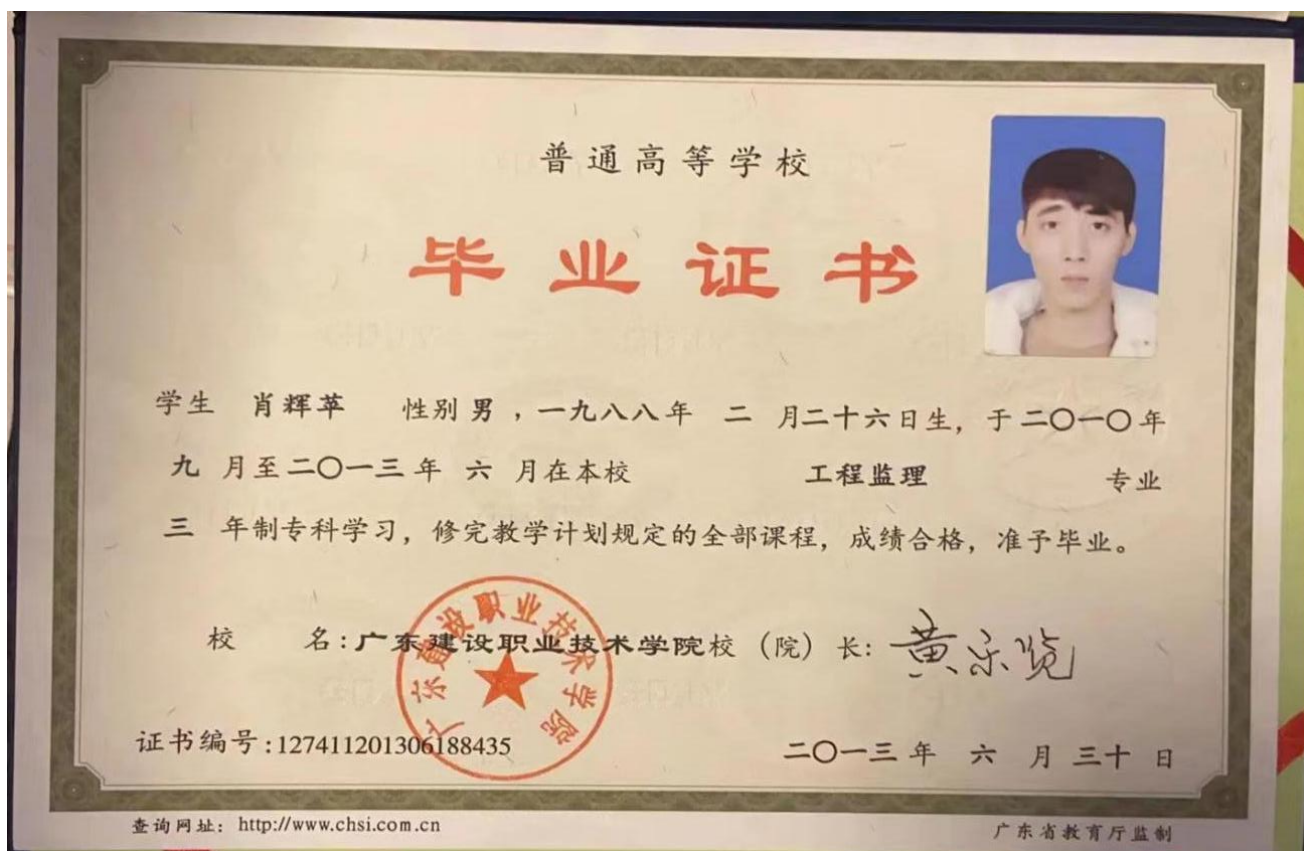 普通高等学校
毕业证书
学生 肖辉苹 性别 男，一九八八年 二 月二十六日生，于二〇一〇年
九 月至二〇一三年 六 月在本校 工程监理 专业
三 年制专科学习，修完教学计划规定的全部课程，成绩合格，准予毕业。
校 名：广东建设职业技术学院校（院）长：黄乐览
广东建设职业技术学院
证书编号：127411201306188435 二〇一三年 六 月 三十 日
查询网址：http://www.chsi.com.cn 广东省教育厅监制